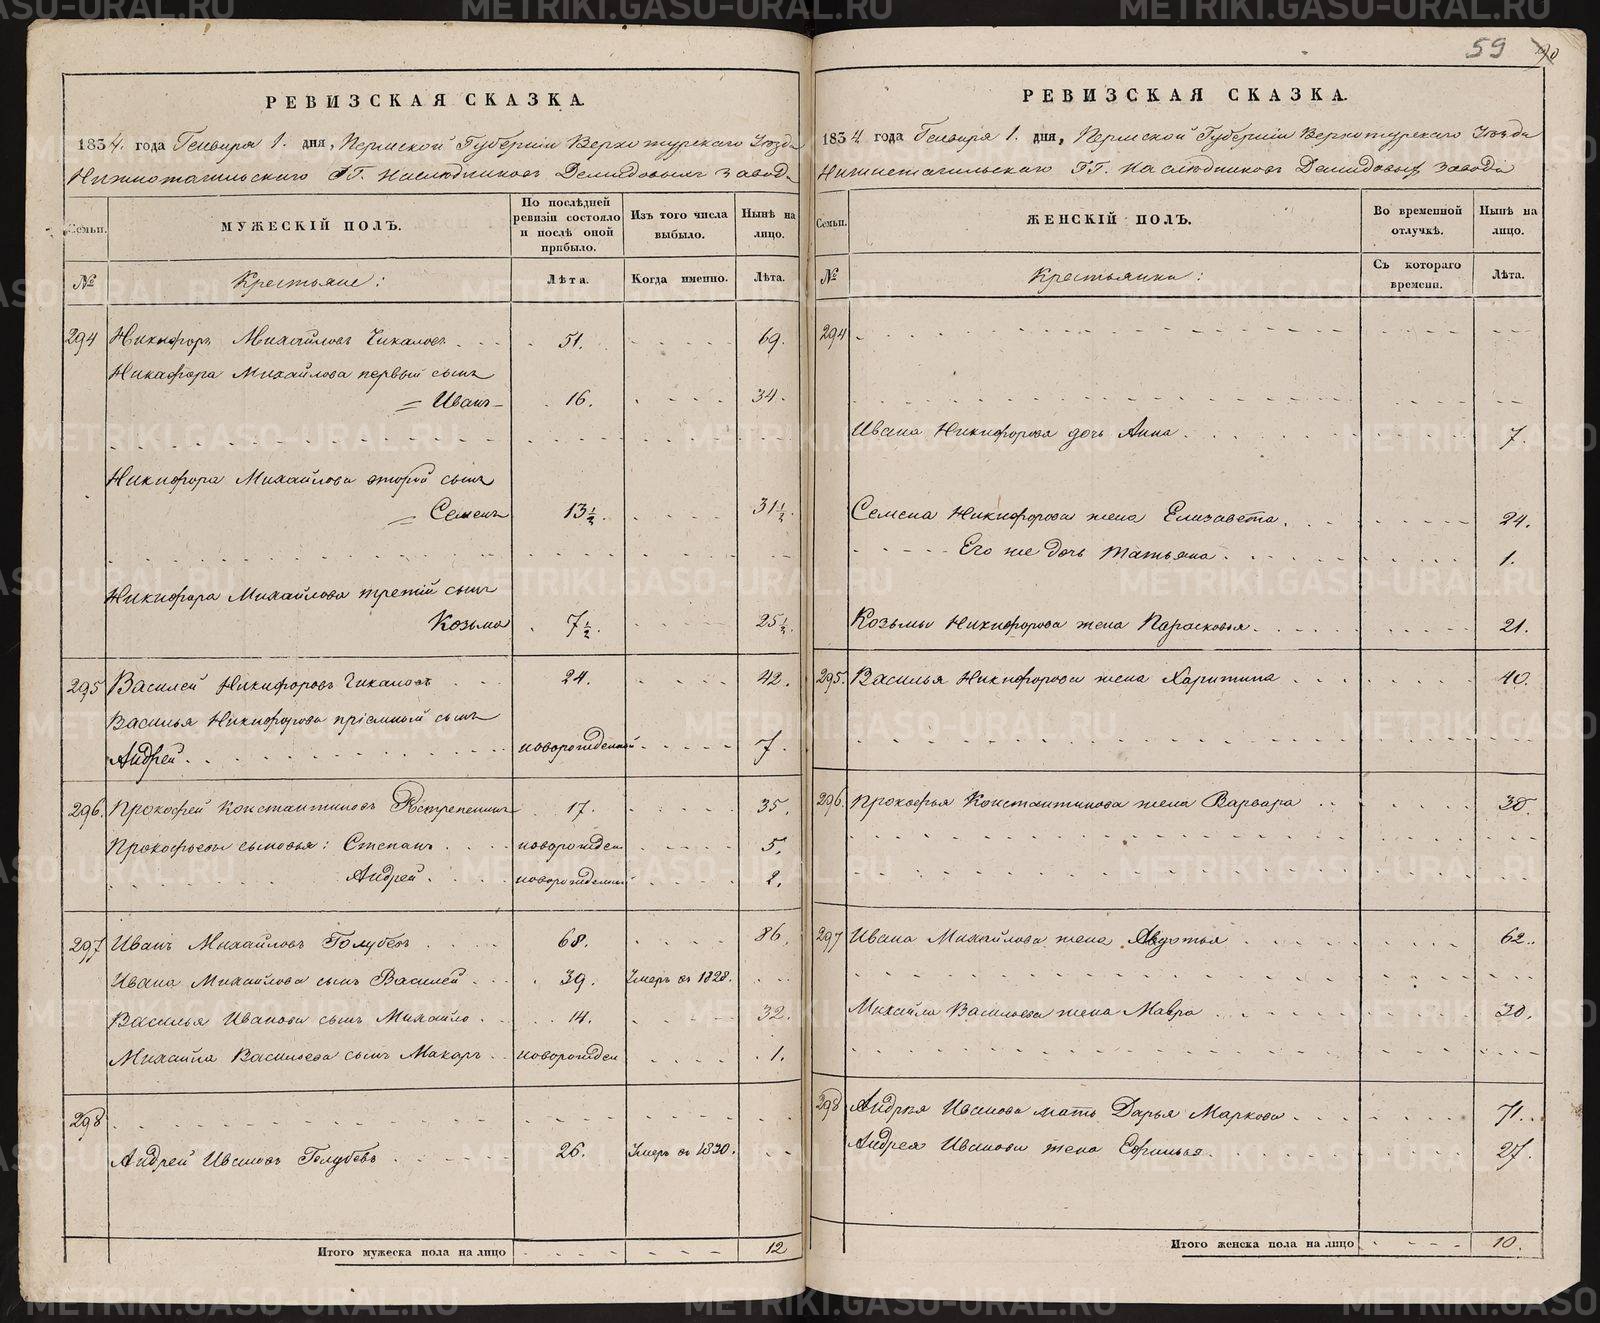 РЕВИЗСКАЯ СКАЗКА.
1834. года Генваря 1. дня, Пермской Губерніи Верхотурскаго Уѣзда
Нижнотагильскаго ГГ. Наслѣдниковъ Демидовыхъ завода
Семьи.
МУЖЕСКІЙ ПОЛЪ.
По послѣдней ревизіи состояло и послѣ оной прибыло.
Изъ того числа выбыло.
Нынѣ на лицо.
№
Крестьяне:
Лѣта.
Когда именно.
Лѣта.
294 Никифоръ Михайловъ Чикаловъ 51. 69.
Никифора Михайлова первый сынъ
= Иванъ 16. 34.
Никифора Михайлова второй сынъ
= Семенъ 13½. 31½.
Никифора Михайлова третій сынъ
Козьма 7½. 25½.
295 Василей Никифоровъ Чикаловъ 24. 42.
Василья Никифорова пріемной сынъ
Андрей новорожденной 7.
296. Прокофей Константиновъ 17. 35.
Прокофьевы сыновья: Степанъ новорожден 5.
Андрей новорожденной 2.
297 Иванъ Михайловъ Голубевъ 68. 86.
Ивана Михайлова сынъ Василей 39. Умеръ въ 1828.
Василья Иванова сынъ Михайло 14. 32.
Михайла Васильева сынъ Макаръ новорожден 1.
298
Андрей Ивановъ Голубевъ 26. Умеръ въ 1830.
Итого мужеска пола на лицо 12
59
РЕВИЗСКАЯ СКАЗКА.
1834 года Генваря 1. дня, Пермской Губерніи Верхотурскаго Уѣзда
Нижнетагильскаго ГГ. Наслѣдниковъ Демидовыхъ завода
Семьи.
ЖЕНСКІЙ ПОЛЪ.
Во временной отлучкѣ.
Нынѣ на лицо.
№
Крестьянки:
Съ котораго времени.
Лѣта.
294
Ивана Никифорова дочь Анна 7.
Семена Никифорова жена Елизавета 24.
Его же дочь Татьяна 1.
Козьмы Никифорова жена Парасковья 21.
295. Василья Никифорова жена Харитина 40.
296. Прокофья Константинова жена Варвара 38.
297 Ивана Михайлова жена Авдотья 62.
Михайла Васильева жена Мавра 30.
298 Андрея Иванова мать Дарья Маркова 71.
Андрея Иванова жена 27.
Итого женска пола на лицо 10.
METRIKI.GASO-URAL.RU